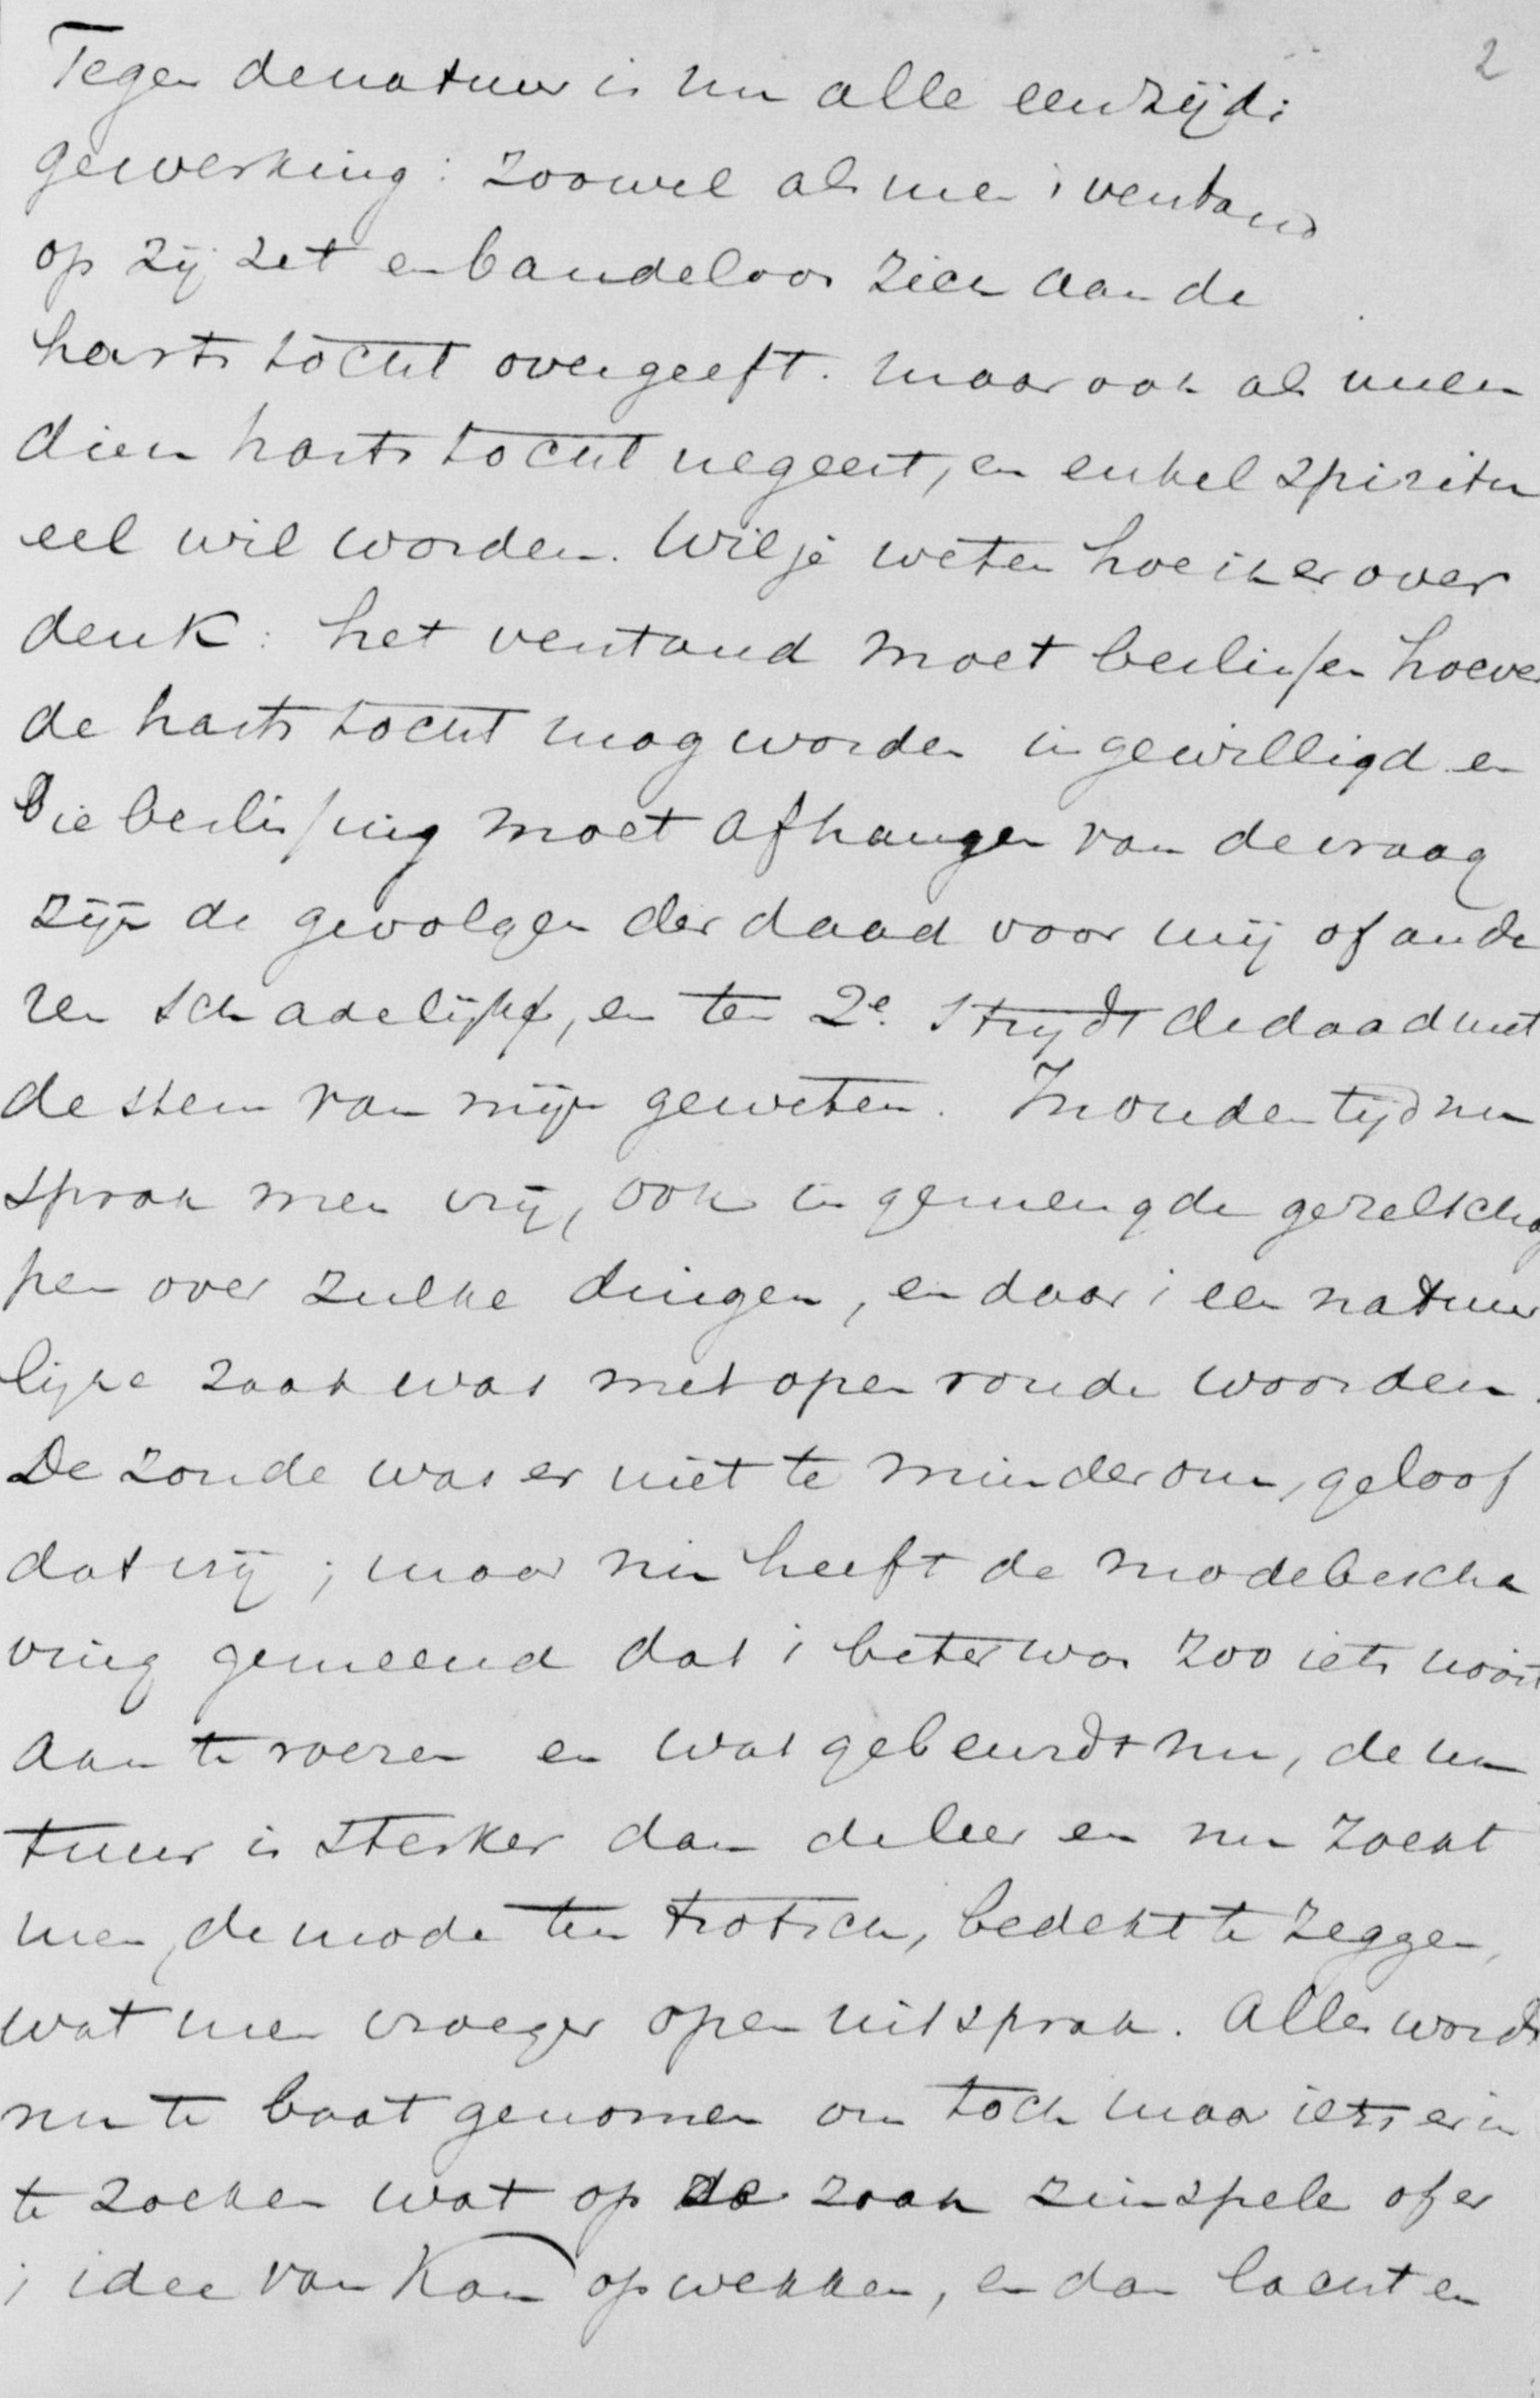 2
Tegen de natuur is nu alle eenzijdi
ge werking: zoowel als men 't verstand
op zij zet en bandeloos zich aan de
hartstocht overgeeft. Maar ook als men
dien hartstocht negeert, en enkel spiritu
eel wil worden. Wil je weten hoe ik er over
denk: het verstand moet beslissen hoever
de hartstocht mag worden ingewilligd en
die beslissing moet afhangen van de vraag
zijn de gevolgen der daad voor mij of ande
ren schadelijk, en ten 2e. strydt de daad met
de stem van mijn geweten. In ouden tijd nu
sprak men vrij, ook in gemengde gezelscha
pen over zulke dingen, en daar 't een natuur
lijke zaak was met open ronde woorden.
De zonde was er niet te minder om, geloof
dat vrij; maar nu heeft de modebescha
ving gemeend dat 't beter was zoo iets nooit
aan te roeren en wat gebeurdt nu, de na
tuur is sterker dan de leer en nu zoekt
men, de mode ten trotsch, bedekt te zeggen,
wat men vroeger open uitsprak. Alles wordt
nu te baat genomen om toch maar iets er in
te zoeken wat op de zaak zinspele of er
't idee van kan opwekken, en dan lacht en